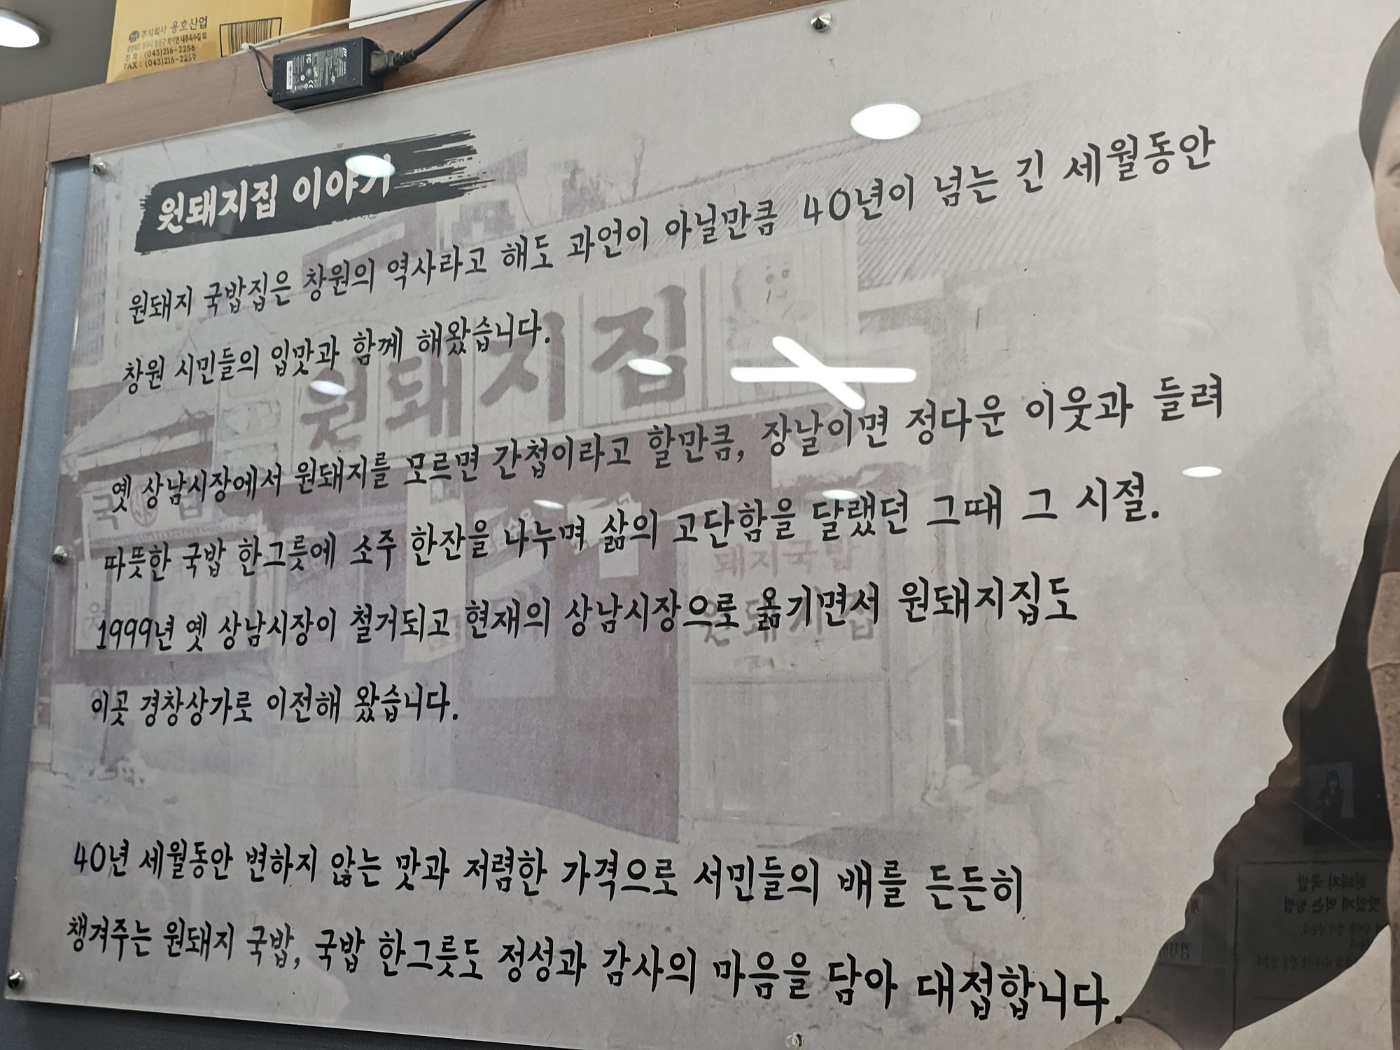 주식회사 용호산업
전화 : (043)216-2256
FAX : (043)216-2257
원돼지집 이야기
원돼지 국밥집은 창원의 역사라고 해도 과언이 아닐만큼 40년이 넘는 긴 세월동안
창원 시민들의 입맛과 함께 해왔습니다.
옛 상남시장에서 원돼지를 모르면 간첩이라고 할만큼, 장날이면 정다운 이웃과 들려
따뜻한 국밥 한그릇에 소주 한잔을 나누며 삶의 고단함을 달랬던 그때 그 시절.
1999년 옛 상남시장이 철거되고 현재의 상남시장으로 옮기면서 원돼지집도
이곳 경창상가로 이전해 왔습니다.
40년 세월동안 변하지 않는 맛과 저렴한 가격으로 서민들의 배를 든든히
챙겨주는 원돼지 국밥, 국밥 한그릇도 정성과 감사의 마음을 담아 대접합니다.
원돼지집
돼지국밥
원돼지집